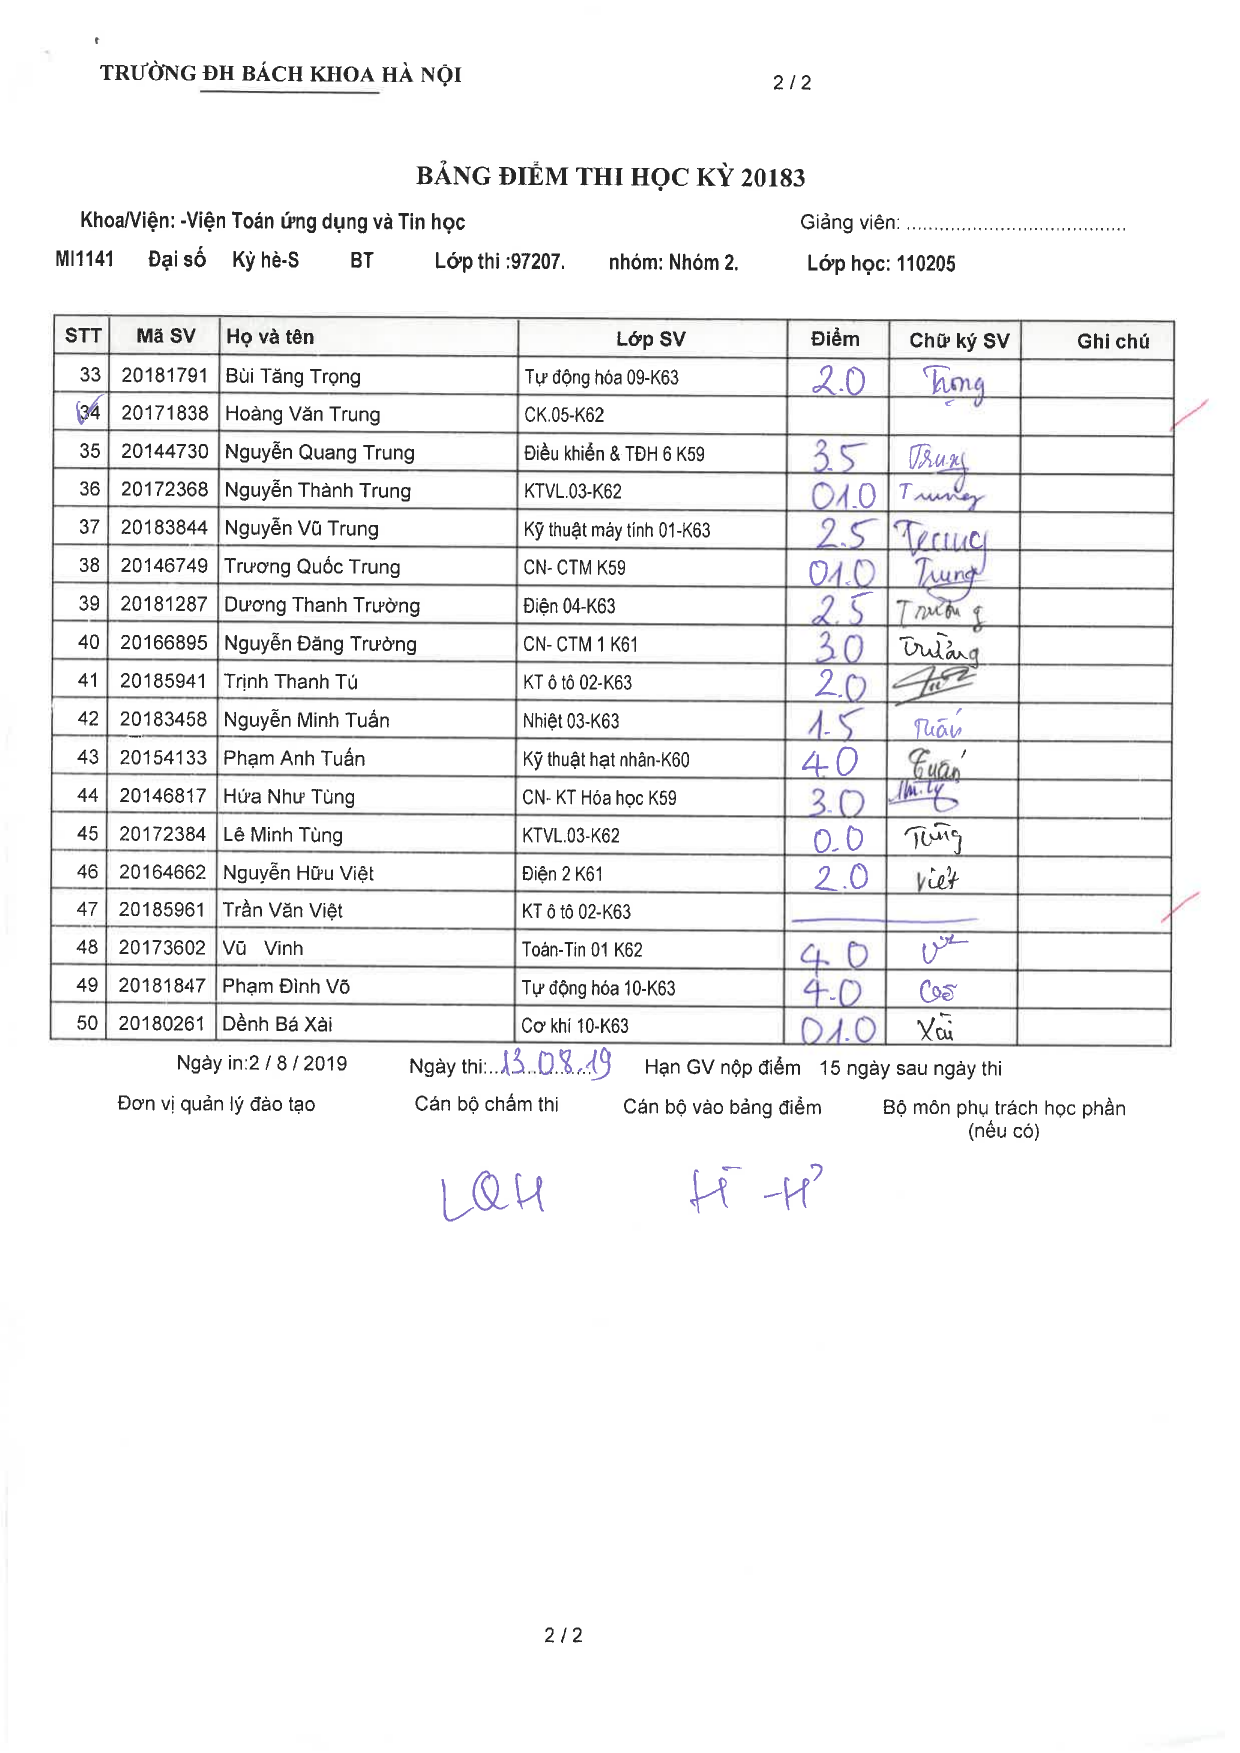 TRƯỜNG ĐH BÁCH KHOA HÀ NỘI 2 / 2
BẢNG ĐIỂM THI HỌC KỲ 20183
Khoa/Viện: -Viện Toán ứng dụng và Tin học Giảng viên: ........................................
MI1141 Đại số Kỳ hè-S BT Lớp thi :97207. nhóm: Nhóm 2. Lớp học: 110205
STT Mã SV Họ và tên Lớp SV Điểm Chữ ký SV Ghi chú
33 20181791 Bùi Tăng Trọng Tự động hóa 09-K63 2.0 Trọng
34 20171838 Hoàng Văn Trung CK.05-K62
35 20144730 Nguyễn Quang Trung Điều khiển & TĐH 6 K59 3.5 Trung
36 20172368 Nguyễn Thành Trung KTVL.03-K62 01.0 Trung
37 20183844 Nguyễn Vũ Trung Kỹ thuật máy tính 01-K63 2.5 Trung
38 20146749 Trương Quốc Trung CN- CTM K59 01.0 Trung
39 20181287 Dương Thanh Trường Điện 04-K63 2.5 Trường
40 20166895 Nguyễn Đăng Trường CN- CTM 1 K61 3.0 Trường
41 20185941 Trịnh Thanh Tú KT ô tô 02-K63 2.0
42 20183458 Nguyễn Minh Tuấn Nhiệt 03-K63 1.5 Tuấn
43 20154133 Phạm Anh Tuấn Kỹ thuật hạt nhân-K60 4.0 Tuấn
44 20146817 Hứa Như Tùng CN- KT Hóa học K59 3.0
45 20172384 Lê Minh Tùng KTVL.03-K62 0.0 Tùng
46 20164662 Nguyễn Hữu Việt Điện 2 K61 2.0 Việt
47 20185961 Trần Văn Việt KT ô tô 02-K63
48 20173602 Vũ Vinh Toán-Tin 01 K62 4.0
49 20181847 Phạm Đình Võ Tự động hóa 10-K63 4.0
50 20180261 Dềnh Bá Xài Cơ khí 10-K63 01.0 Xài
Ngày in:2 / 8 / 2019 Ngày thi:..13.08.19 Hạn GV nộp điểm 15 ngày sau ngày thi
Đơn vị quản lý đào tạo Cán bộ chấm thi Cán bộ vào bảng điểm Bộ môn phụ trách học phần
(nếu có)
LQH
2 / 2